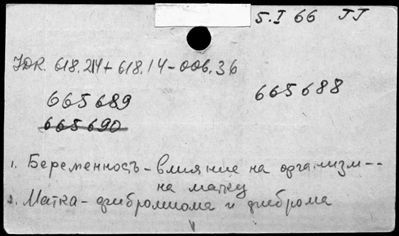 5.I 66 JJ
УДК. 618.214 + 618.14-006.36
665689
665688
665690
1. Беременность - влияние на организм --
на матку
2. Матка - фибромиома и фиброма